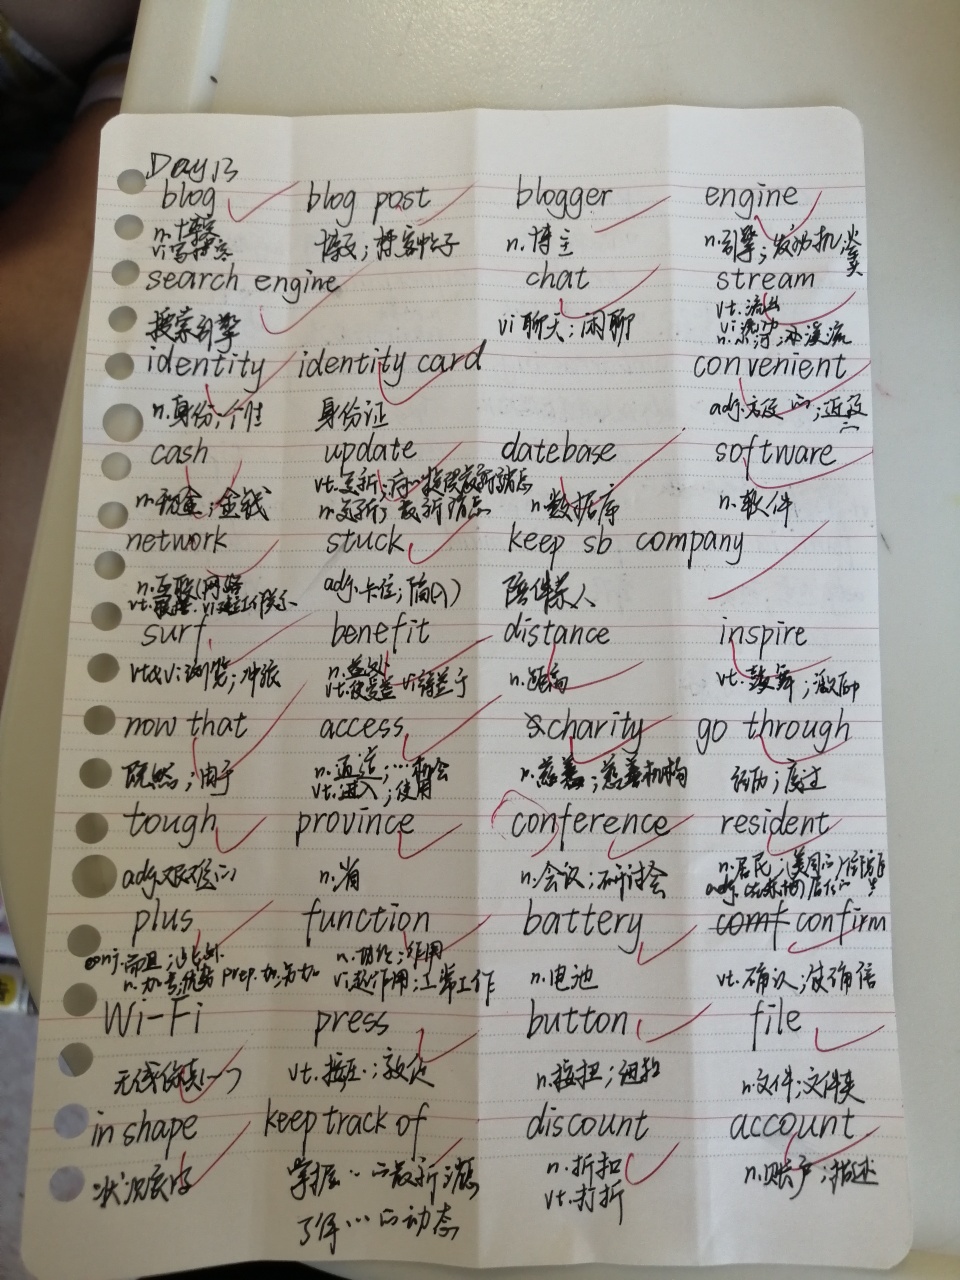 Day 13
blog blog post blogger engine
n.博客 博文；博客帖子 n.博主 n.引擎；发动机
vi写博客
search engine chat stream
搜索引擎 vi聊天；闲聊 vt.流出
identity identity card convenient
n.身份；个性 身份证 adj.方便的；近
cash update datebase software
n.现金；金钱 vt.更新；向…提供最新消息 n.数据库 n.软件
n.更新；最新消息
network stuck keep sb company
n.互联网络 adj.卡住；陷(入) 陪伴某人
surf benefit distance inspire
vt&vi浏览；冲浪 n.益处 n.距离 vt.鼓舞；激励
vt.使受益 vi得益于
now that access charity go through
既然；由于 n.通道；…机会 n.慈善；慈善机构 经历；度过
vt.进入；使用
tough province conference resident
adj.艰难的 n.省 n.会议；研讨会 n.居民；(美国的)住院医生
plus function battery comf confirm
conj.而且；此外 n.功能；作用 n.电池 vt.确认；使确信
n.加号；优势 prep.加；另加 vi起作用；正常工作
Wi-Fi press button file
vt.按压；敦促 n.按扭；纽扣 n.文件；文件夹
in shape keep track of discount account
状况良好 掌握…的最新消息 n.折扣 n.账户；描述
了解…的动态 vt.打折